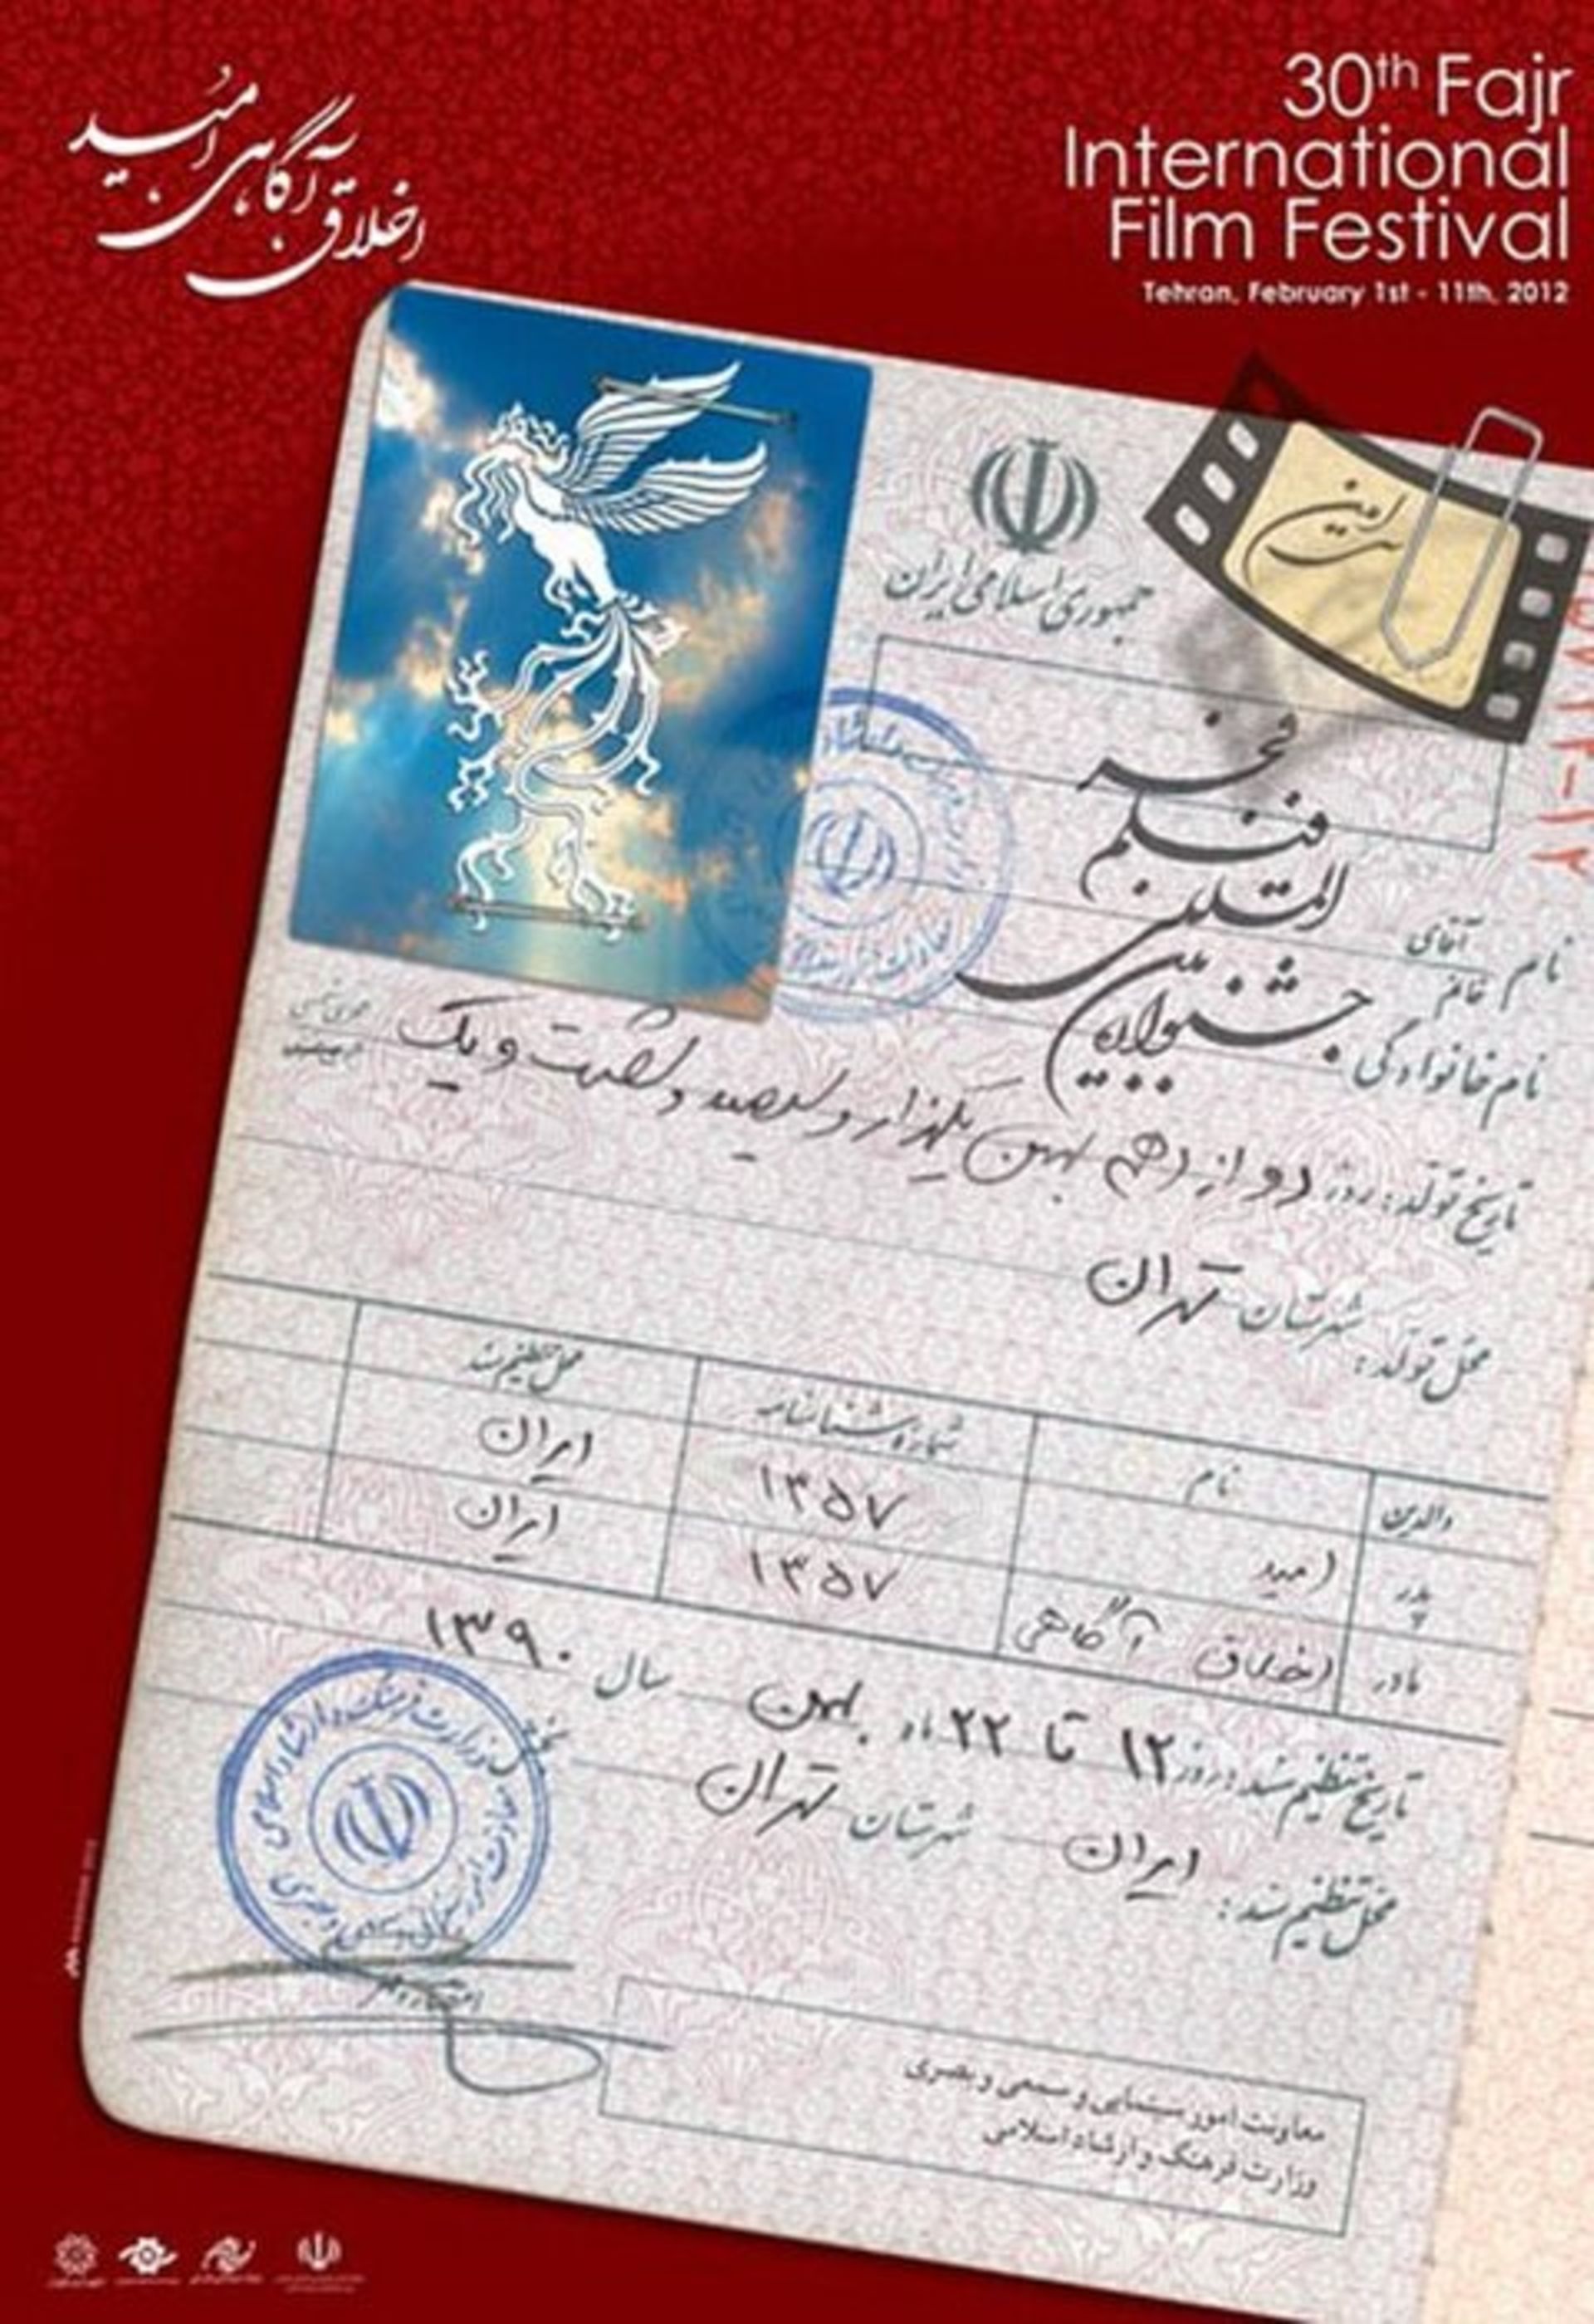 اخلاق آگاهی امید
30th Fajr
International
Film Festival
Tehran, February 1st - 11th, 2012
جمهوری اسلامی ایران
سی امین
جشنواره
بین
المللی
فیلم
فجر
نام آقای
خانم
نام خانوادگی
تاریخ تولد: روز دوازدهم بهمن یکهزار و سیصد و شصت و یک
محل تولد: شهرستان تهران
والدین نام شماره شناسنامه محل تنظیم سند
پدر امید ۱۳۵۷ ایران
مادر اخلاق آگاهی ۱۳۵۷ ایران
تاریخ تنظیم سند: روز ۱۲ تا ۲۲ ماه بهمن سال ۱۳۹۰
محل تنظیم سند: ایران شهرستان تهران
معاونت امور سینمایی و سمعی و بصری
وزارت فرهنگ و ارشاد اسلامی